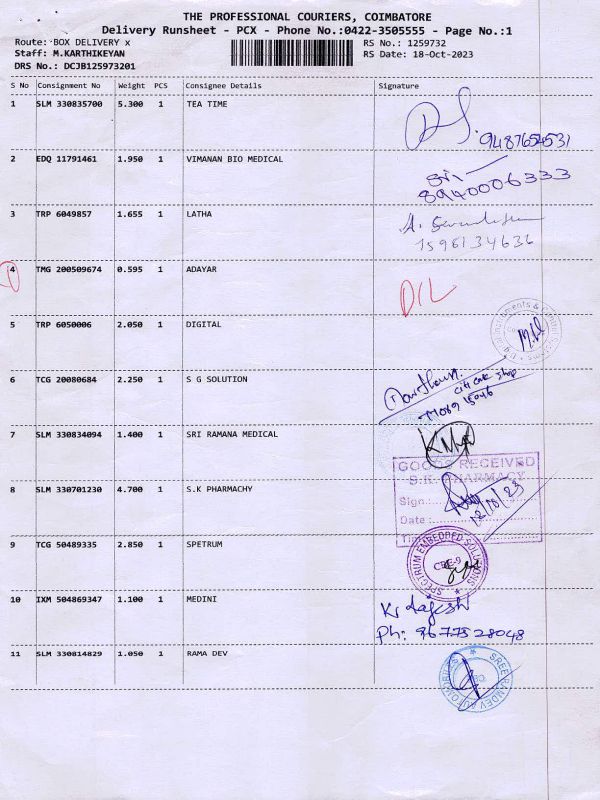 THE PROFESSIONAL COURIERS, COIMBATORE
Delivery Runsheet - PCX - Phone No.:0422-3505555 - Page No.:1
Route: BOX DELIVERY x RS No.: 1259732
Staff: M.KARTHIKEYAN RS Date: 18-Oct-2023
DRS No.: DCJB125973201
S No Consignment No Weight PCS Consignee Details Signature
1 SLM 330835700 5.300 1 TEA TIME
9487654531
2 EDQ 11791461 1.950 1 VIMANAN BIO MEDICAL
8940006333
3 TRP 6049857 1.655 1 LATHA
1596134636
4 TMG 200509674 0.595 1 ADAYAR
D/L
5 TRP 6050006 2.050 1 DIGITAL
6 TCG 20080684 2.250 1 S G SOLUTION
7 SLM 330834094 1.400 1 SRI RAMANA MEDICAL
GOODS RECEIVED
S.K. PHARMACY
8 SLM 330701230 4.700 1 S.K PHARMACHY
Sign.:
18/10/23
Date :
9 TCG 50489335 2.850 1 SPETRUM
SPECTRUM EMBEDDED SOLUTIONS
CBE-9
10 IXM 504869347 1.100 1 MEDINI
K rajesh
Ph: 9677528048
11 SLM 330814829 1.050 1 RAMA DEV